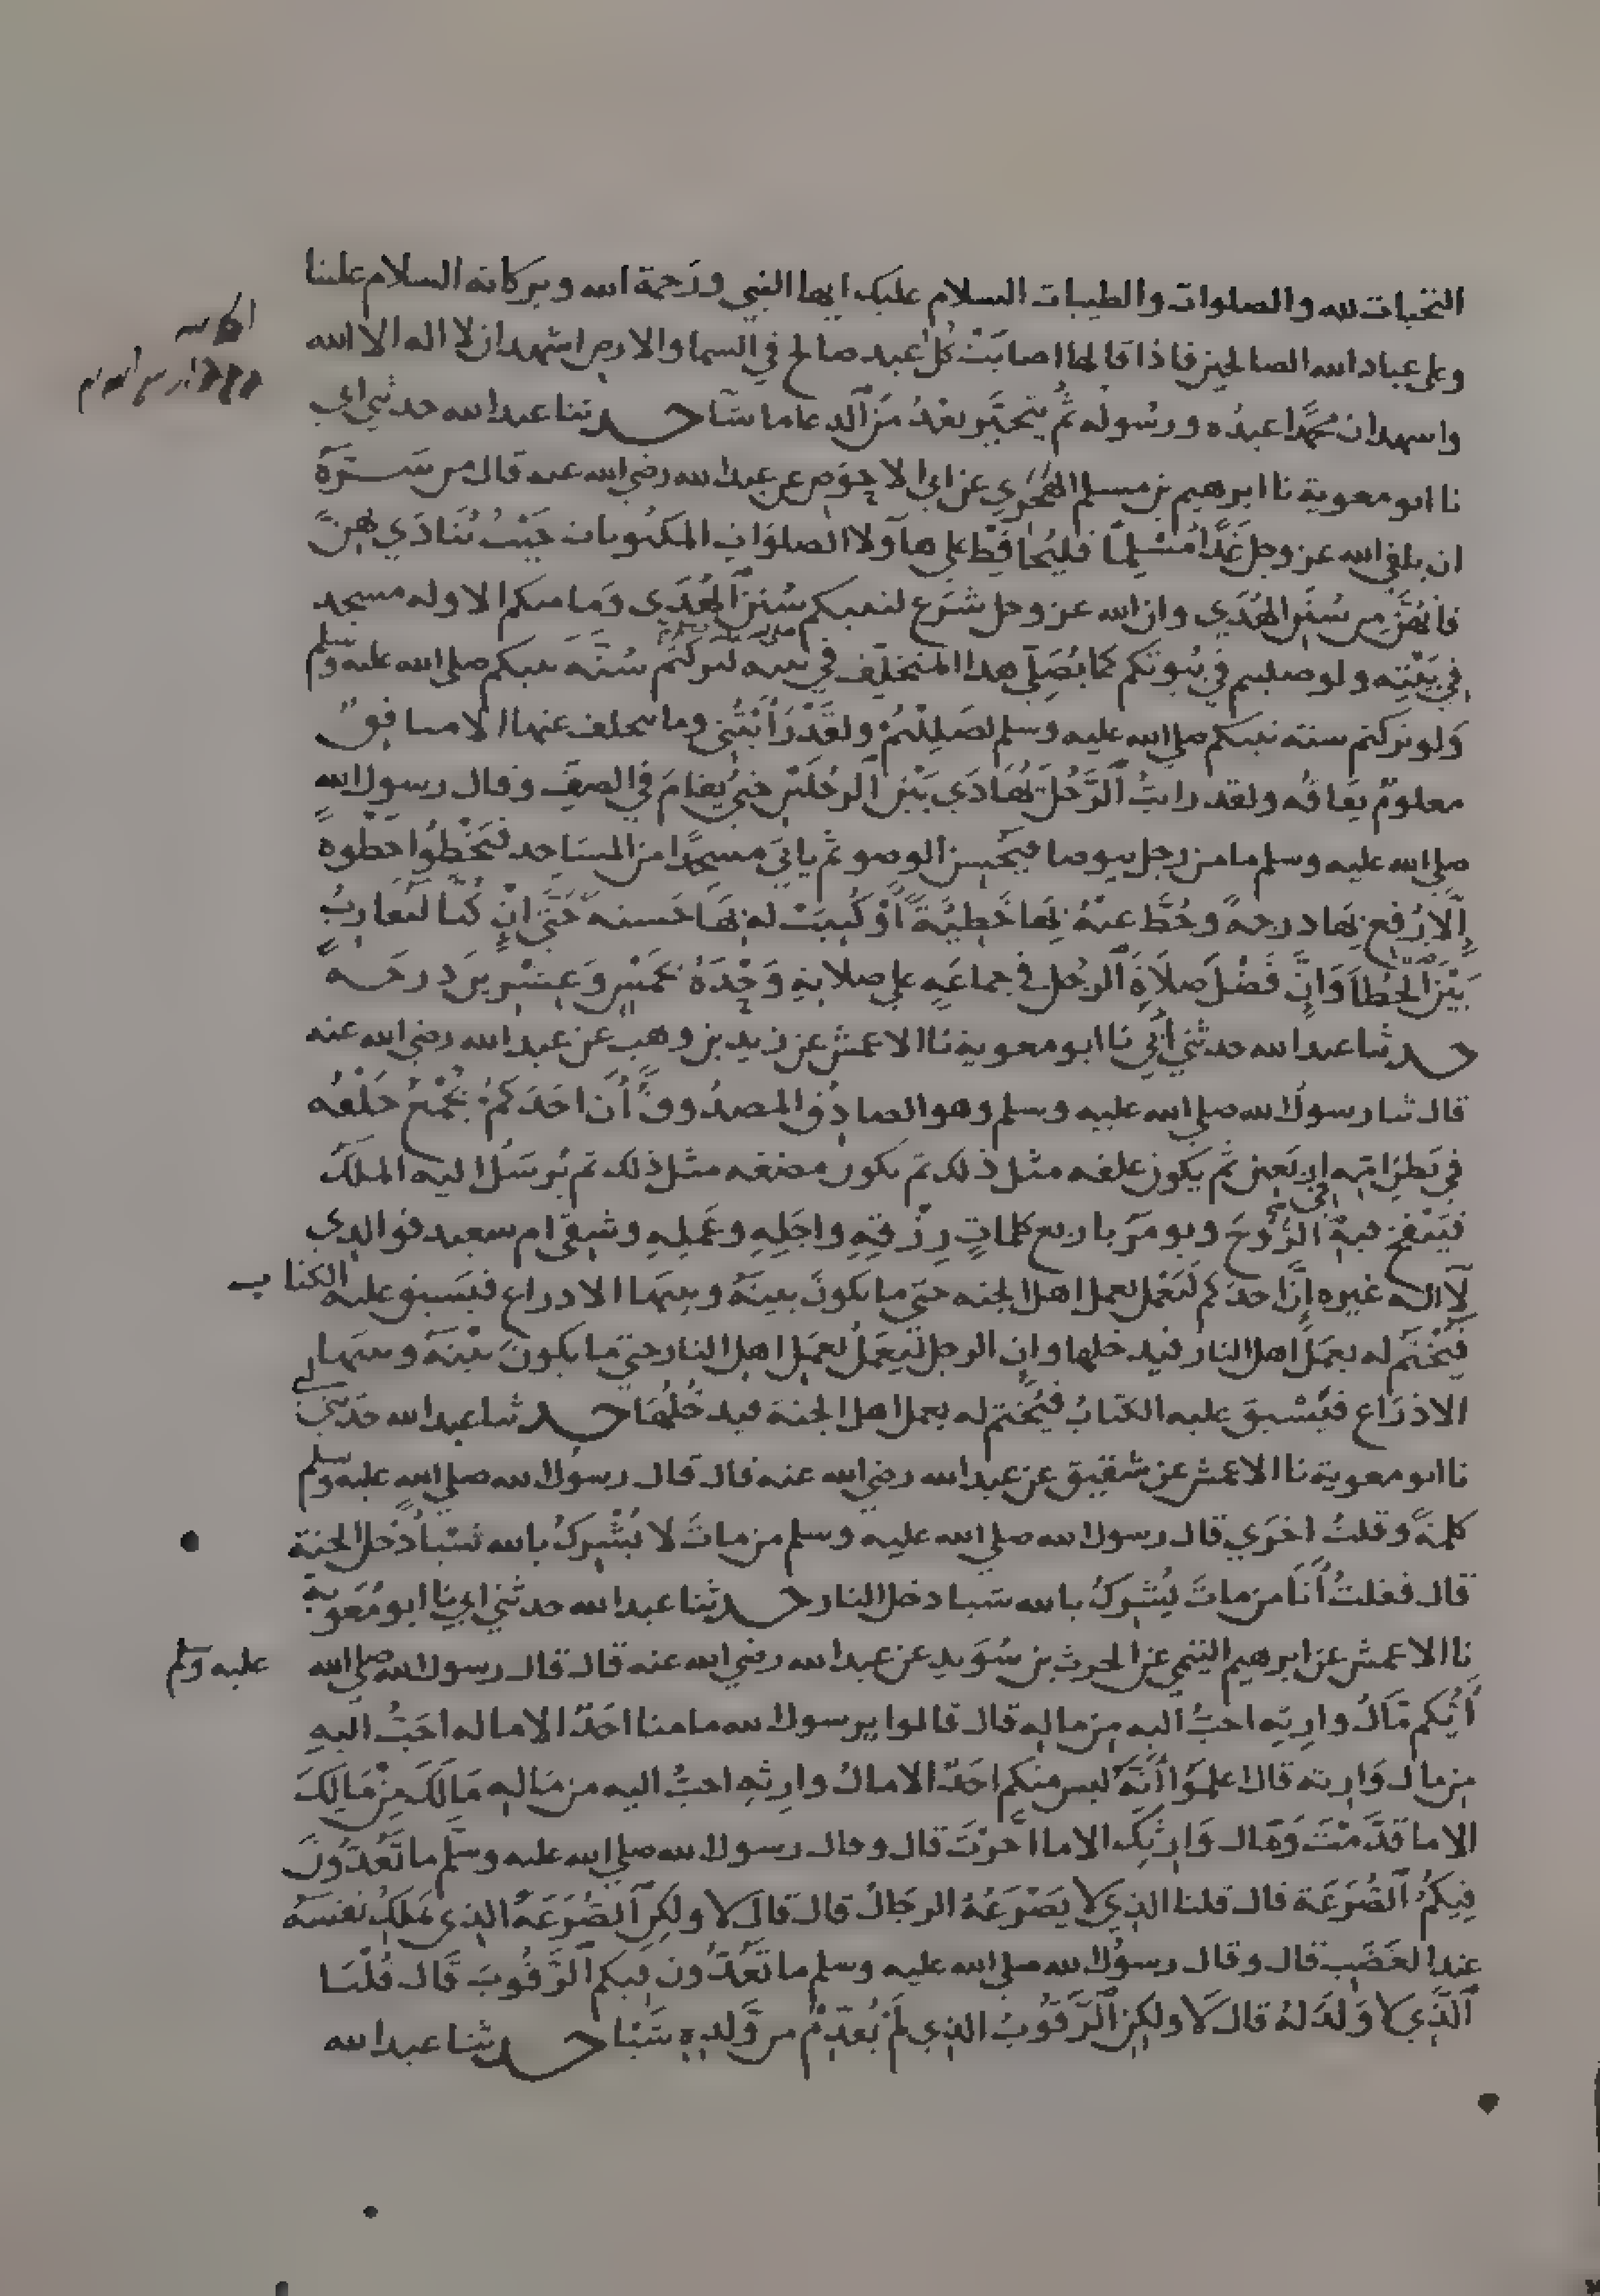 التحيات لله والصلوات والطيبات السلام عليك ايها النبي ورحمة الله وبركاته السلام علينا
وعلى عباد الله الصالحين فاذا قالها اصابت كل عبد صالح في السما والارض اشهد ان لا اله الا الله
واشهد ان محمدا عبده ورسوله ثم يتخير بعد من الدعا ما شآ حدثنا عبد الله حدثني ابي
نا ابو معوية نا ابرهيم بن مسلم الهجري عن ابي الاحوص عن عبد الله رضي الله عنه قال من سره
ان يلقى الله عز وجل غدا مسلما فليحافظ على هاولا الصلوات المكتوبات حيث ينادي بهن
فانهن من سنن الهدي وان الله عز وجل شرع لنبيكم سنن الهدي وما منكم الا وله مسجد
في بيته ولو صليتم في بيوتكم كما يصلي هذا المتخلف في بيته لتركتم سنة نبيكم صلى الله عليه وسلم
ولو تركتم سنة نبيكم صلى الله عليه وسلم لضللتم ولقد رايتني وما يتخلف عنها الا منافق
معلوم نفاقه ولقد رايت الرجل يهادي بين الرجلين حتى يقام في الصف وقال رسول الله
صلى الله عليه وسلم ما من رجل يتوضا فيحسن الوضو ثم ياتي مسجدا من المساجد فيخطوا خطوة
الا رفع بها درجة وحط عنه بها خطيئة او كتبت له بها حسنة حتى ان كنا لنقارب
بين الخطا وان فضل صلاة الرجل في جماعة على صلاته وحده بخمس وعشرين درجة
حدثنا عبد الله حدثني ابي نا ابو معوية نا الاعمش عن زيد بن وهب عن عبد الله رضي الله عنه
قال ثنا رسول الله صلى الله عليه وسلم وهو الصادق المصدوق ان احدكم يجمع خلقه
في بطن امه اربعين ثم يكون علقه مثل ذلك ثم يكون مضغه مثل ذلك ثم يرسل اليه الملك
فينفخ فيه الروح ويومر باربع كلمات رزقه واجله وعمله وشقي ام سعيد فوالذي
لا اله غيره ان احدكم ليعمل بعمل اهل الجنه حتى ما يكون بينه وبينها الا ذراع فيسبق عليه الكتاب
فيختم له بعمل اهل النار فيدخلها وان الرجل ليعمل بعمل اهل النار حتى ما يكون بينه وبينها
الا ذراع فيسبق عليه الكتاب فيختم له بعمل اهل الجنة فيدخلها حدثنا عبد الله حدثني ابي
نا ابو معوية نا الاعمش عن شقيق عن عبد الله رضي الله عنه قال قال رسول الله صلى الله عليه وسلم
كلمة وقلت اخري قال رسول الله صلى الله عليه وسلم من مات لا يشرك بالله شيا دخل الجنة
قال فقلت انا من مات يشرك بالله شيا دخل النار حدثنا عبد الله حدثني ابي نا ابو معوية
نا الاعمش عن ابرهيم التيمي عن الحرث بن سويد عن عبد الله رضي الله عنه قال قال رسول الله صلى الله عليه وسلم
ايكم مال وارثه احب اليه من ماله قال قالوا يرسول الله ما منا احد الا ماله احب اليه
من مال وارثه قال اعلموا انه ليس منكم احد الا مال وارثه احب اليه من ماله مالك من مالك
الا ما قدمت ومال وارثك الا ما اخرت قال وقال رسول الله صلى الله عليه وسلم ما تعدون
فيكم الصرعة قال قلنا الذي لا يصرعه الرجال قال قال لا ولكن الصرعة الذي يملك نفسه
عند الغضب قال وقال رسول الله صلى الله عليه وسلم ما تعدون فيكم الرقوب قال قلنا
الذي لا ولد له قال لا ولكن الرقوب الذي لم يقدم من ولده شيا حدثنا عبد الله